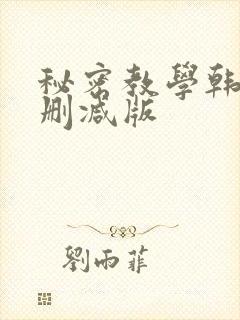 秘密教學韩
删减版
劉雨菲